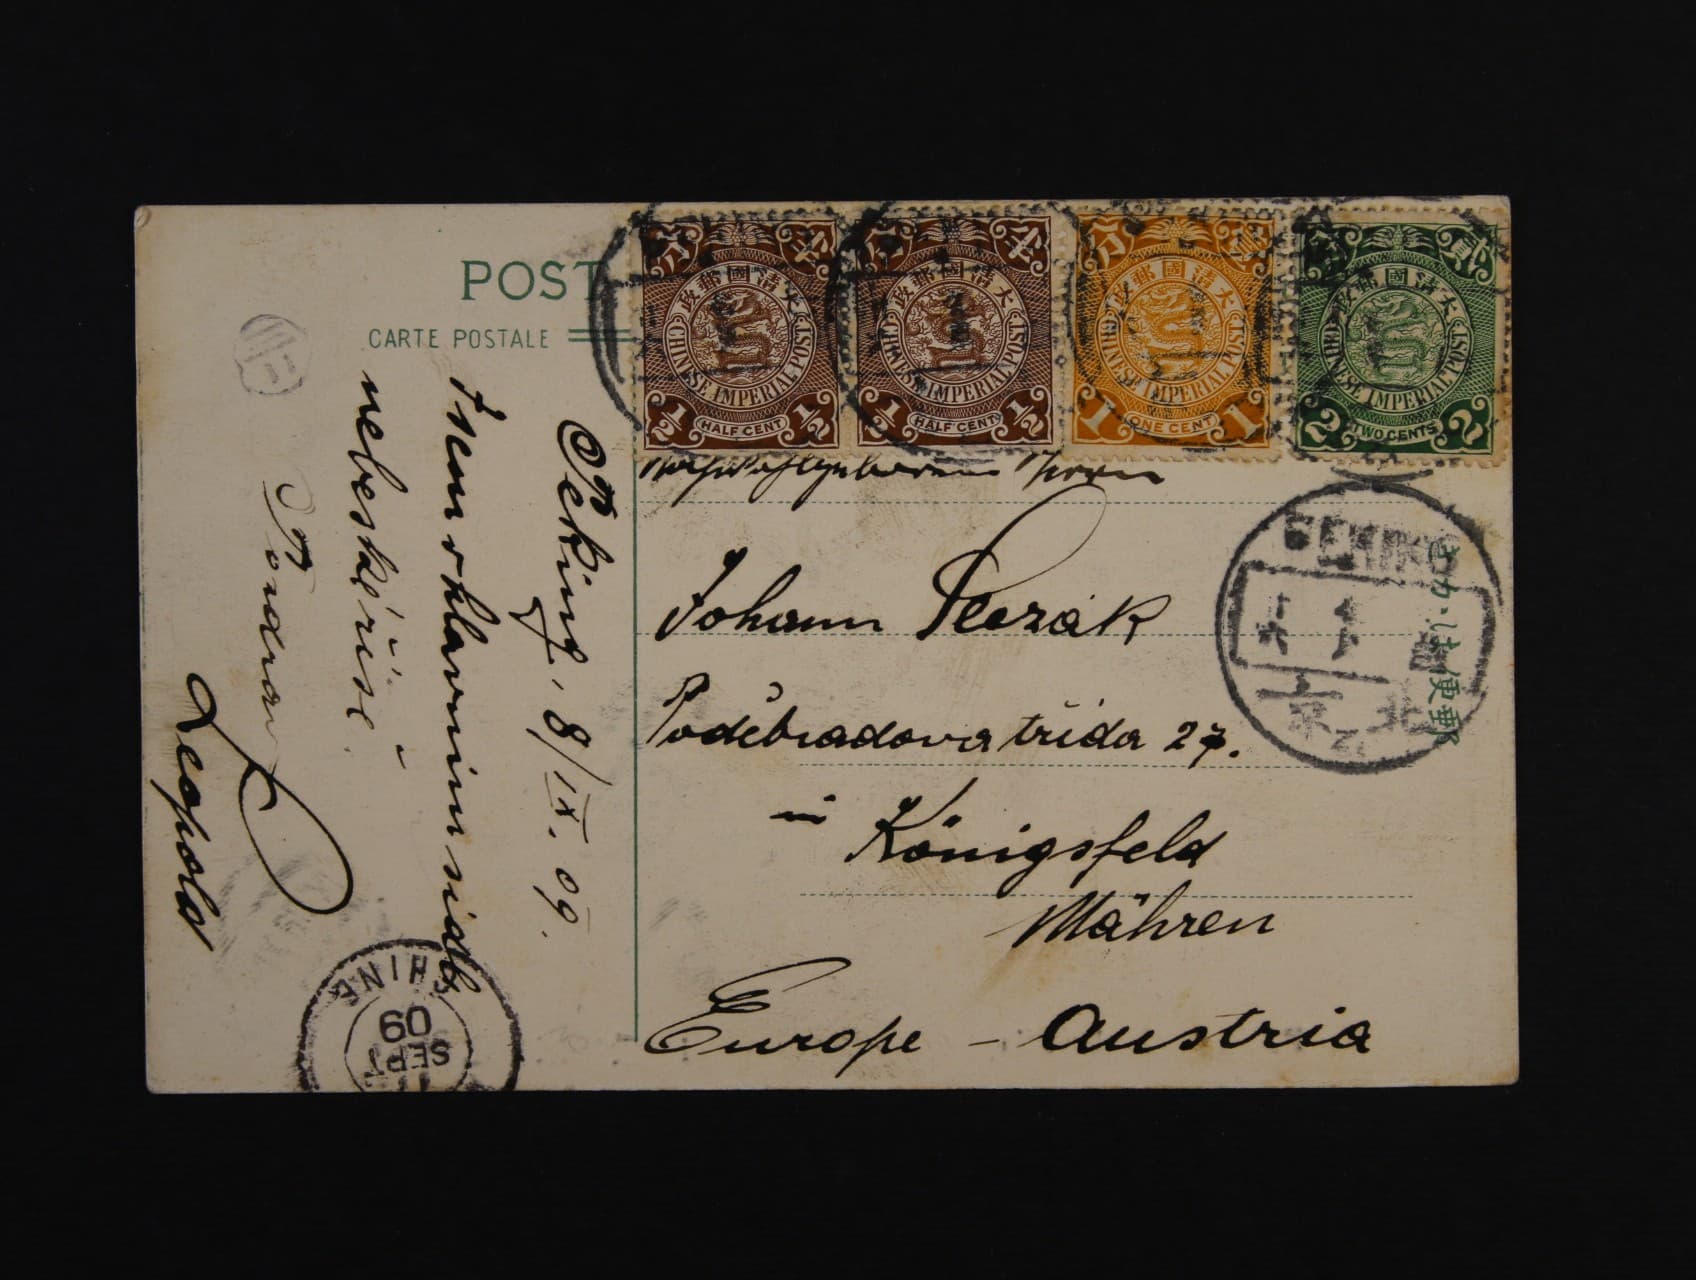 POST
CARTE POSTALE
Peking, 8/IX. 09.
Jsem v hlavním sídle
nebeské říše.
Leopold
大清國郵政
CHINESE IMPERIAL POST
½ HALF CENT ½
大清國郵政
CHINESE IMPERIAL POST
½ HALF CENT ½
大清國郵政
CHINESE IMPERIAL POST
1 ONE CENT 1
大清國郵政
CHINESE IMPERIAL POST
2 TWO CENTS 2
Johann
Poděbradova třída 27.
in Königsfeld
Mähren
Europe - Austria
PEKING
北京
きかは便郵
CHINE
SEPT
09